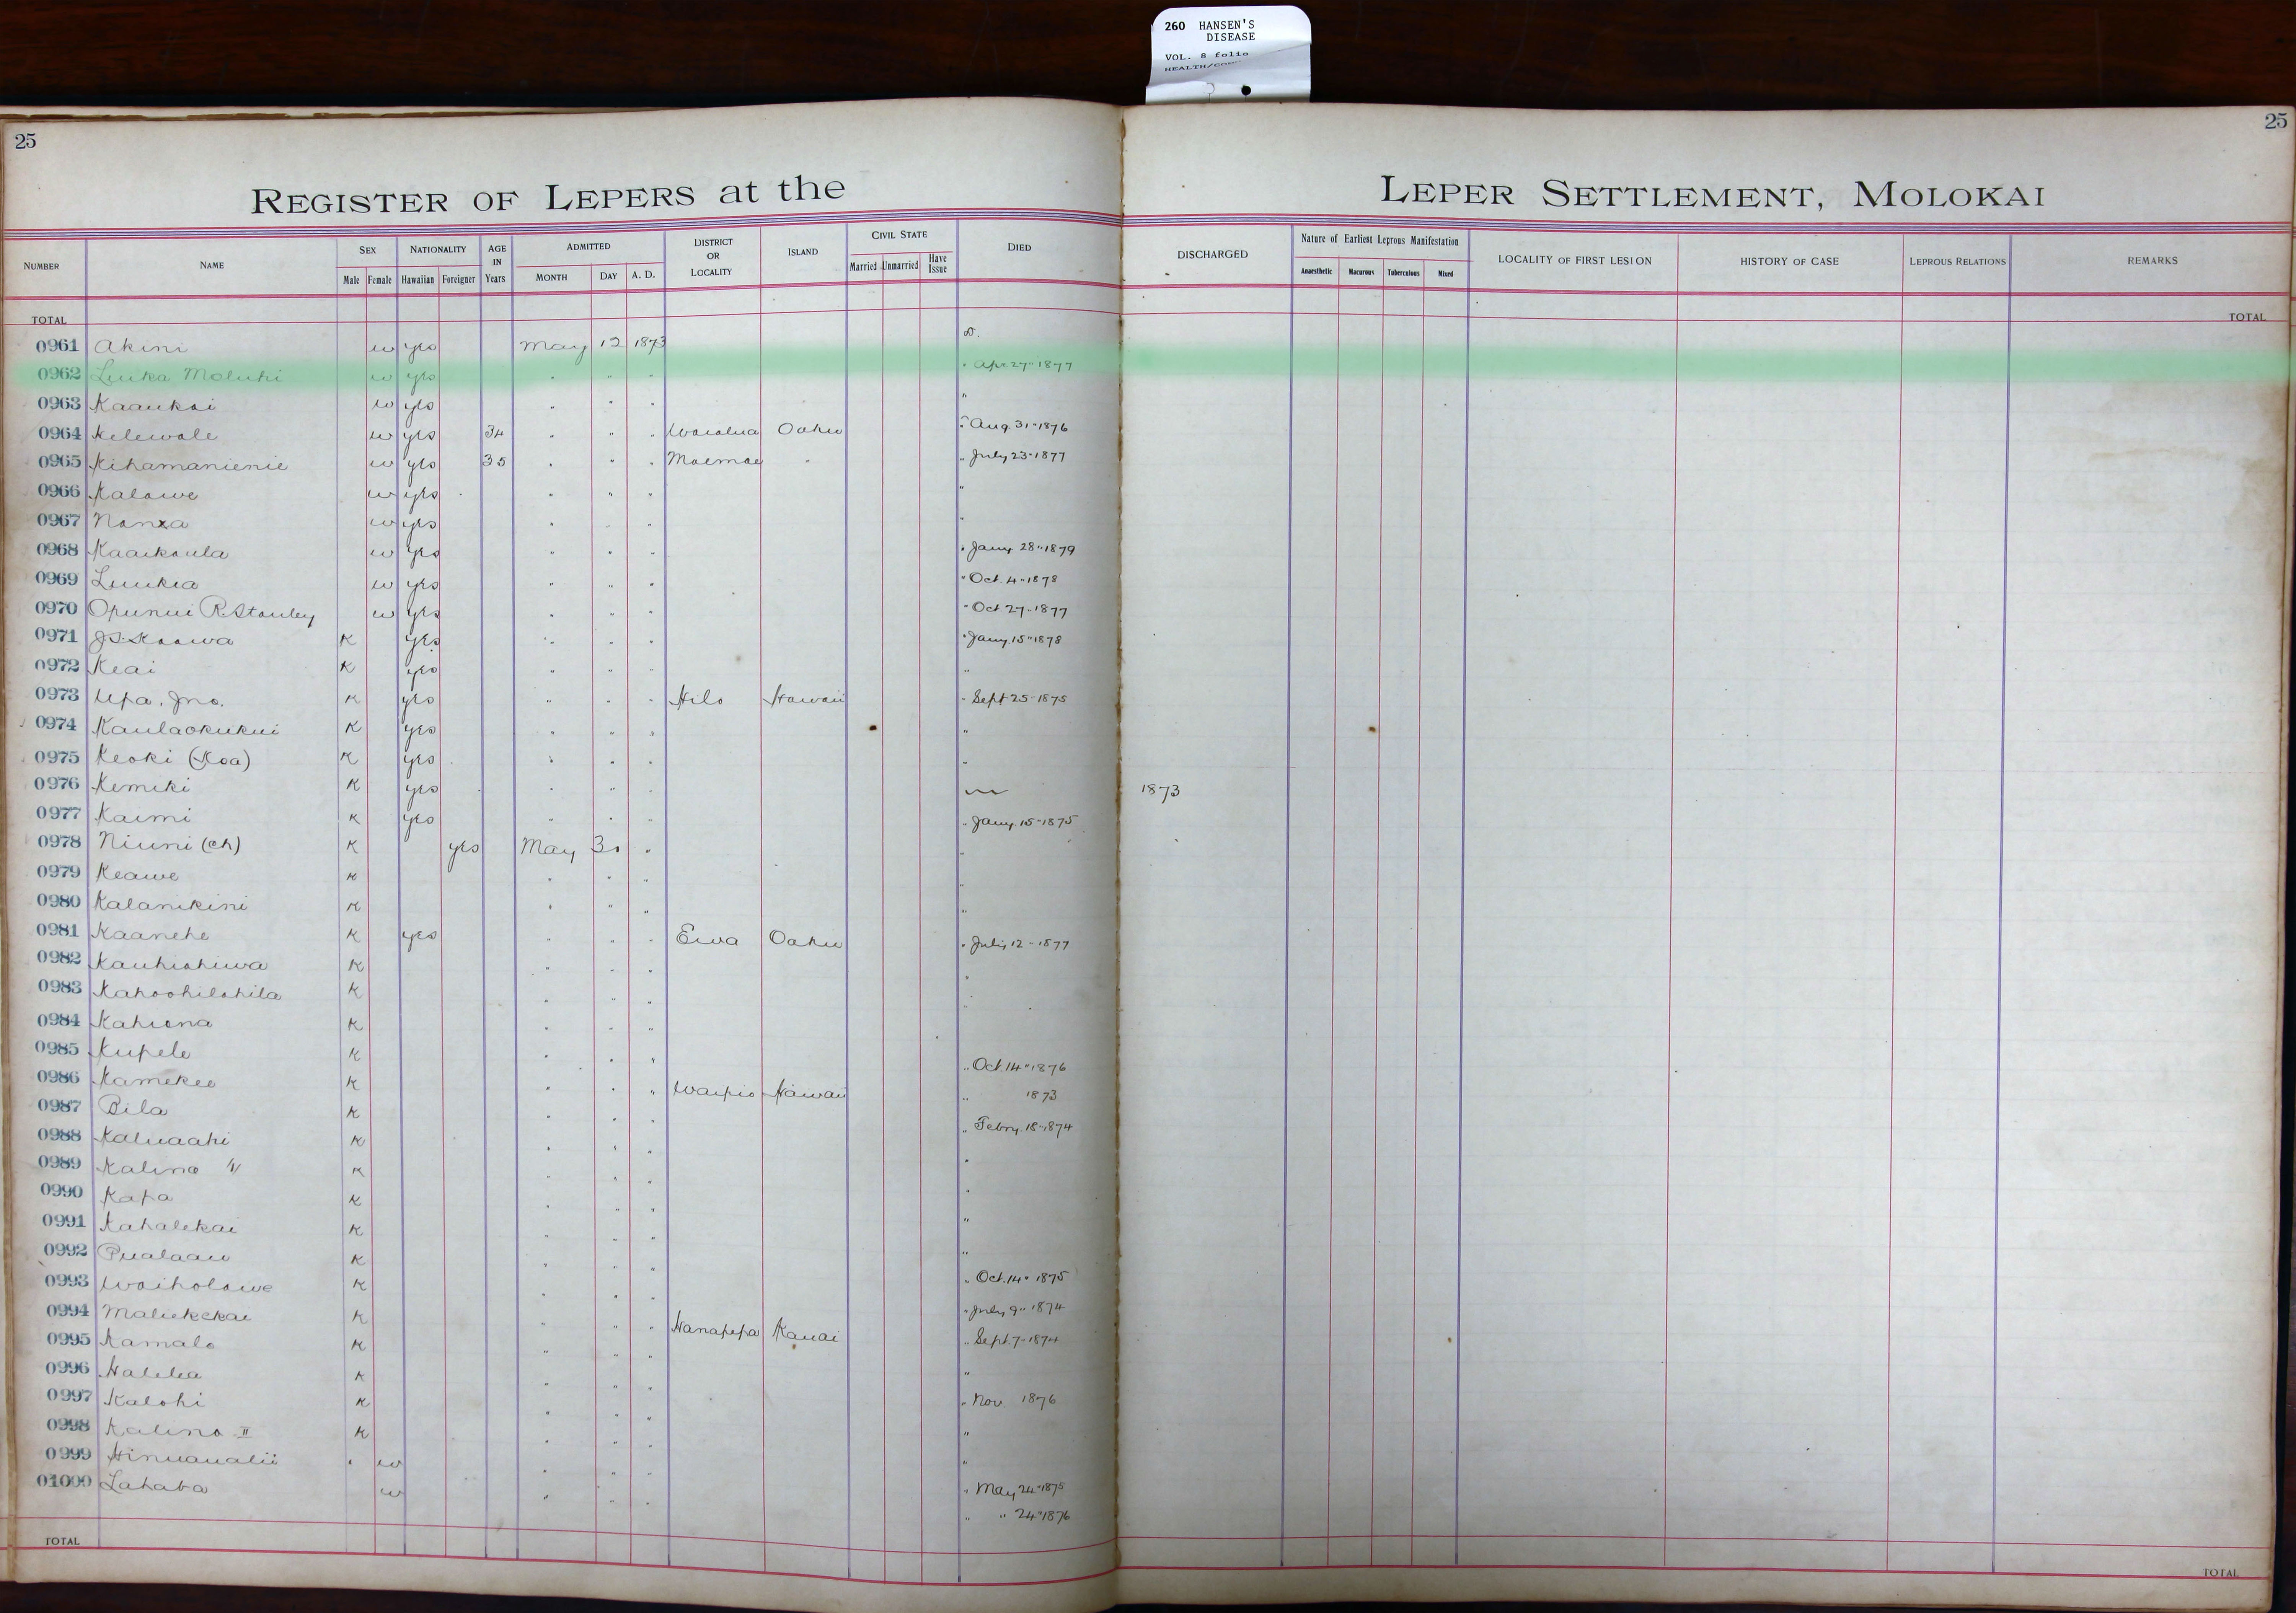 260 HANSEN'S
DISEASE
VOL. 8 folio
25
25
REGISTER OF LEPERS at the LEPER SETTLEMENT, MOLOKAI
NUMBER NAME SEX NATIONALITY AGE IN Years ADMITTED DISTRICT OR LOCALITY ISLAND CIVIL STATE DIED DISCHARGED Nature of Earliest Leprous Manifestation LOCALITY OF FIRST LESION HISTORY OF CASE LEPROUS RELATIONS REMARKS
Male Female Hawaiian Foreigner MONTH DAY A. D. Married Unmarried Have Issue Anaesthetic Macurous Tuberculous Mixed
TOTAL TOTAL
0961 Akini w yes May 12 1873 D.
0962 Luika Moluhi w yes " " " " Apr. 27" 1877
0963 Kaaukai w yes " " " "
0964 Kelewale w yes 34 " " " Waialua Oahu " Aug. 31" 1876
0965 Kihamanienie w yes 35 " " " Moemoe " " July 23" 1877
0966 Kalawe w yes " " " "
0967 w yes " " " "
0968 Kaaikaula w yes " " " " Jany. 28" 1879
0969 Luukia w yes " " " " Oct. 4" 1878
0970 Opunui R. Stanley w yes " " " " Oct 27" 1877
0971 J.S. Kaawa K yes " " " " Jany. 15" 1878
0972 Keai K yes " " " "
0973 Upa. Jno. K yes " " " Hilo Hawaii " Sept 25" 1875
0974 Kaulaokukui K yes " " " "
0975 Keoki (Koa) K yes " " " "
0976 Kemiki K yes " " " 1873
0977 Kaimi K yes " " " " Jany. 15" 1875
0978 Niuni (ch) K yes May 30 " "
0979 Keawe K " " " "
0980 Kalanikini K " " " "
0981 Kaanehe K yes " " " Ewa Oahu " July 12" 1877
0982 Kauhiahiwa K " " " "
0983 Kahoohilahila K " " " "
0984 Kahiona K " " "
0985 Kupele K " " " " Oct. 14" 1876
0986 Kamekeo K " " " Waipio Hawaii " 1873
0987 Bila K " " " " Febry. 18" 1874
0988 Kaluaahi K " " " "
0989 Kalino K " " " "
0990 Kapa K " " " "
0991 Kahalekai K " " " "
0992 Pualaau K " " " " Oct. 14" 1875
0993 Waiholawe K " " " " July 9" 1874
0994 Maliekekai K " " " Hanapepa Kauai " Sept. 7" 1874
0995 Kamalo K " " " "
0996 Halelea K " " " " Nov. 1876
0997 Kalohi K " " " "
0998 Kalino II K " " " "
0999 Hinuaualii w " " " " May 24" 1875
01000 Lahaba w " " " " " 24" 1876
TOTAL TOTAL